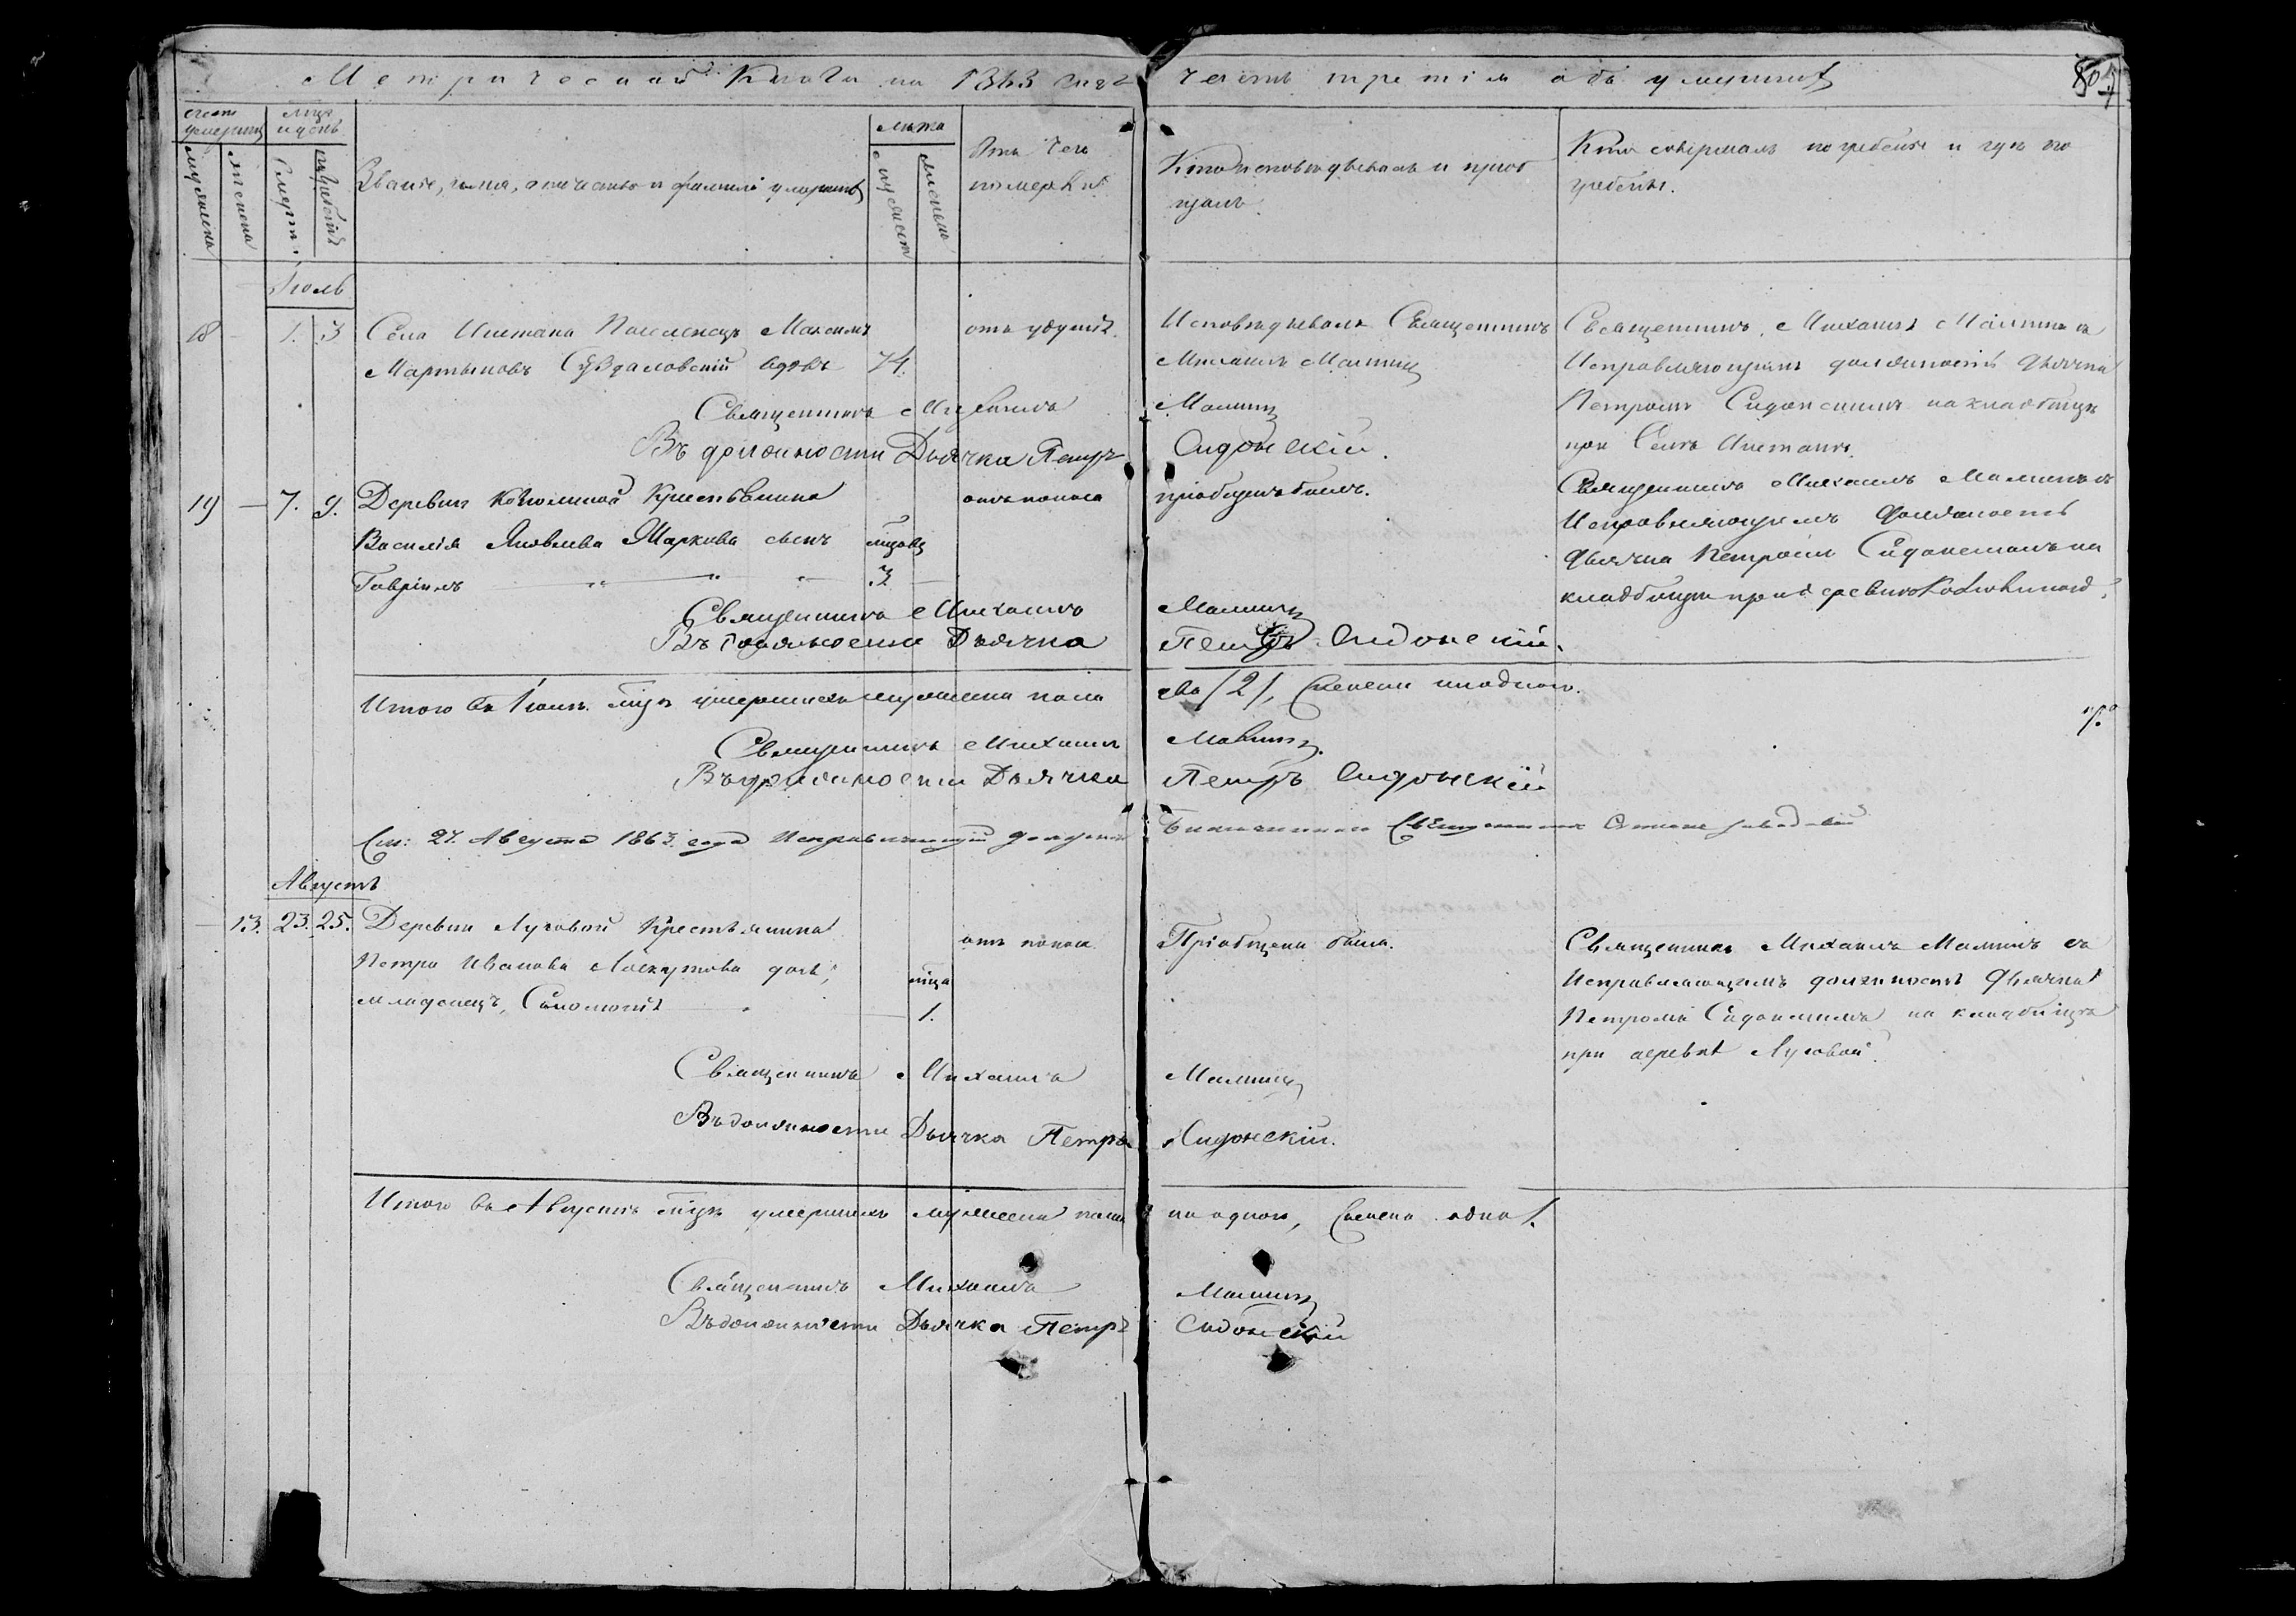 Метрической Книги на 1863 годъ часть третія объ умершихъ
807
Счетъ умершихъ
Мѣсяцъ и день
Лѣта
Мужеска
Женска
Смерти
Погребенія
Званіе, имя, отчество и фамилія умершихъ
Мужеск
Женска
Отъ чего померъ
Кто исповѣдывалъ и пріобщалъ
Кто совершалъ погребеніе и гдѣ погребены.
Іюль
18 — 1. 3 Села Иштана Поселенецъ Максимъ
Мартыновъ вдовъ 74.
Исповѣдывалъ Священникъ
Михаилъ Малинъ
Священникъ Михаилъ Малинъ съ
Исправляющимъ должность дьячка
Петромъ Сидонскимъ на кладбищѣ
при Селѣ Иштанѣ.
Священникъ Михаилъ Малинъ
Въ должности Дьячка Петръ Сидонскій.
19 — 7. 9. Деревни Крестьянина отъ поноса пріобщенъ былъ.
Василія Яковлева Маркова сынъ мѣсяц
Гавріилъ — " — " — 3. —
Священникъ Михаилъ Малинъ съ
Исправляющимъ должность
дьячка Петромъ Сидонскимъ на
кладбищѣ при деревнѣ
Священникъ Михаилъ Малинъ
Въ должности Дьячка Петръ Сидонскій.
Итого въ Іюлѣ мѣсяцѣ умершихъ мужеска пола два /2/, женска ни одного.
Священникъ Михаилъ Малинъ.
Въ должности Дьячка Петръ Сидонскій
27. Августа 1863 года Исправляющій должность Благочиннаго Священникъ
Августъ
— 13. 23. 25. Деревни Луговой Крестьянина отъ поноса Пріобщена была.
Петра Иванова Лоскутова дочь, мѣсяца
младенецъ, 1.
Священникъ Михаилъ Малинъ съ
Исправляющимъ должность дьячка
Петромъ Сидонскимъ на кладбищѣ
при деревнѣ Луговой.
Священникъ Михаилъ Малинъ
Въ должности Дьячка Петръ Сидонскій.
Итого въ Августѣ мѣсяцѣ умершихъ мужеска пола ни одного, женска одна 1.
Священникъ Михаилъ Малинъ
Въ должности Дьячка Петръ Сидонскій